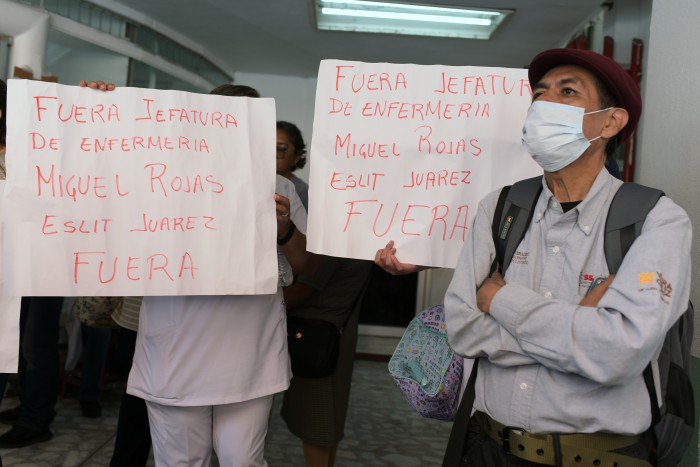 FUERA JEFATURA
DE ENFERMERIA
MIGUEL ROJAS
ESLIT JUAREZ
FUERA
FUERA JEFATURA
DE ENFERMERIA
MIGUEL ROJAS
ESLIT JUAREZ
FUERA